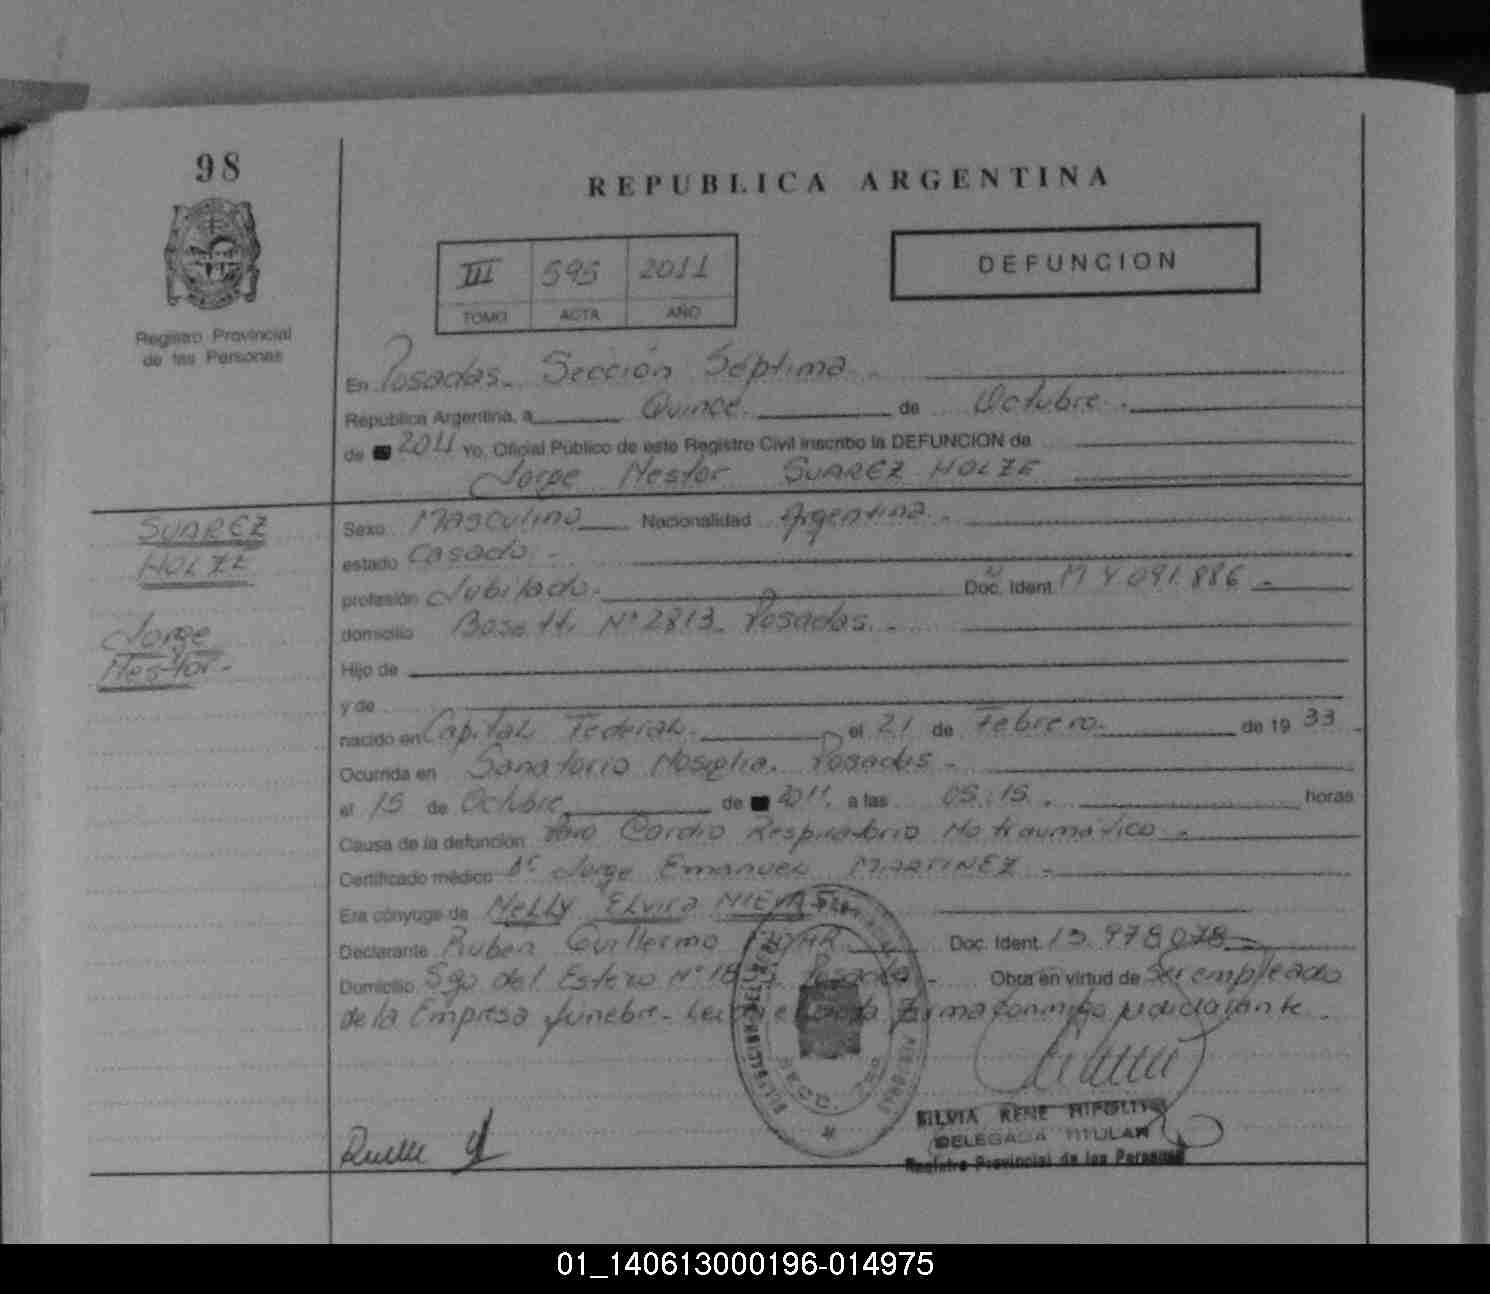 98
REPUBLICA ARGENTINA
III 595 2011
TOMO ACTA AÑO
DEFUNCION
Registro Provincial
de las Personas
En Posadas. Sección Séptima
República Argentina, a Quince de Octubre.
de 2011 Yo, Oficial Público de este Registro Civil inscribo la DEFUNCION de
Jorge Nestor SUAREZ HOLZE
SUAREZ
HOLZE
Jorge
Nestor.-
Sexo Masculino Nacionalidad Argentina.-
estado Casado.-
profesión Jubilado. Doc. Ident. M 4.091.886 -
domicilio Bosetti N° 2813. Posadas.-
Hijo de
y de
nacido en Capital Federal. el 21 de Febrero. de 19 33.-
Ocurrida en Sanatorio Posadas -
el 15 de Octubre de 2011. a las 05:15. horas
Causa de la defunción Paro Cardio Respiratorio No traumático -
Certificado médico Dr Jorge Emanuel MARTINEZ -
Era cónyuge de Nelly Elvira
Declarante Ruben Guillermo Doc. Ident. 13.978078-
Domicilio Sgo del Estero N° Posadas - Obra en virtud de Ser empleado
de la Empresa fúnebre. firma conmigo
SILVIA RENE HIPOLITO
DELEGADA TITULAR
Registro Provincial de las Personas
01_140613000196-014975